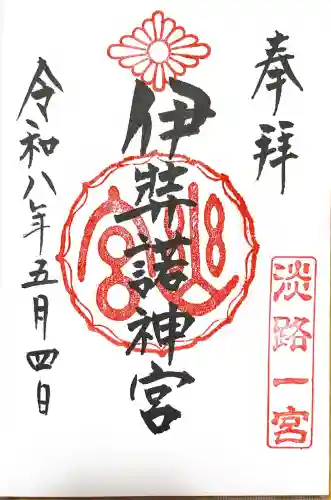 奉拝
淡路一宮
伊弉諾神宮
令和八年五月四日